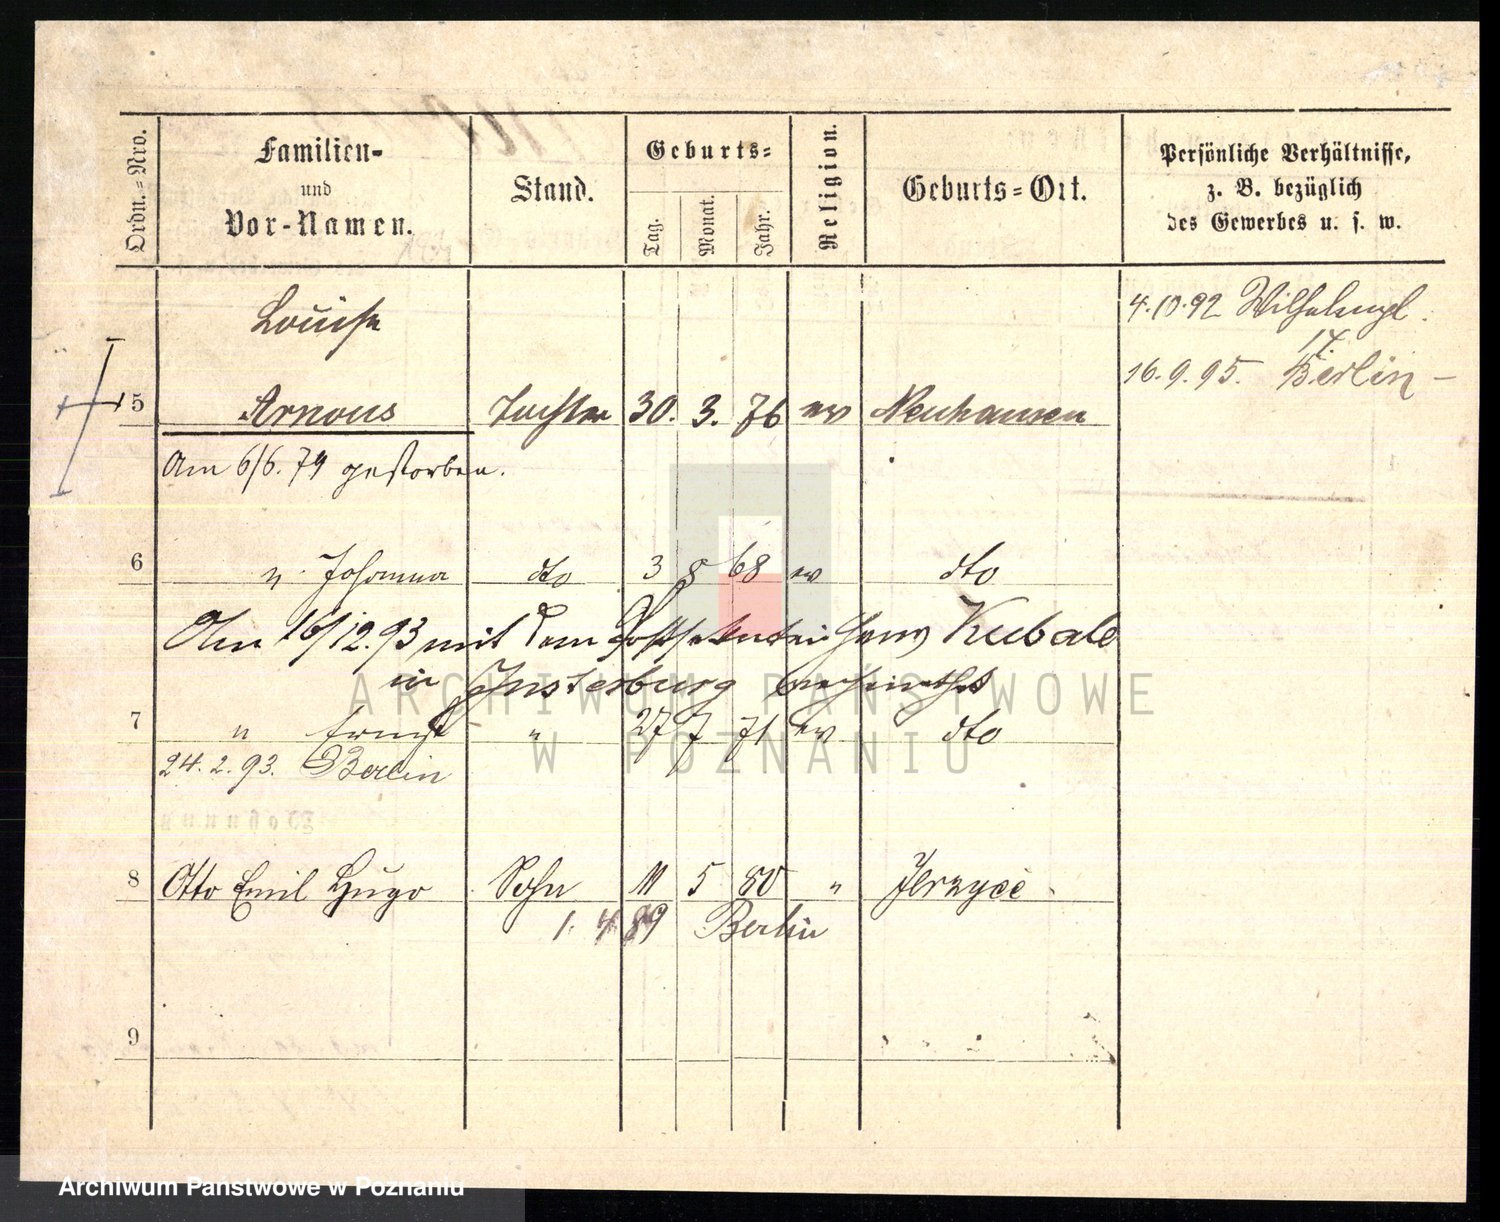 Ordn.=Nro.
Familien-
und
Vor-Namen.
Stand.
Geburts=
Tag.
Monat.
Jahr.
Religion.
Geburts=Ort.
Persönliche Verhältnisse,
z. B. bezüglich
des Gewerbes u. s. w.
Louise
4.10.92 Wilhelmpl.
17.
16.9.95. Berlin –
5 Arnous Tochter 30. 3. 76 ev Neuhausen
Am 6/6. 79 gestorben.
6 " Johanna dto 3 8 68 ev dto
Am 16/12.93 mit dem Hans Kubale
in Insterburg verheirathet
7 " Ernst " 27 7 71 ev dto
24.2.93. Berlin
Wohnung
8 Otto Emil Hugo Sohn 11 5 80 " Jerzyce
1. 4 89 Berlin
9
ARCHIWUM PAŃSTWOWE
W POZNANIU
Archiwum Państwowe w Poznaniu